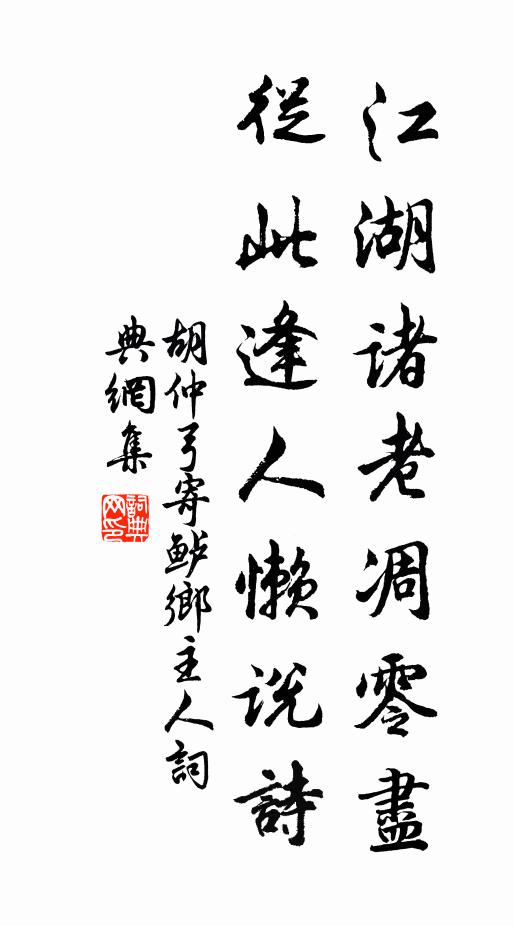 江湖诸老凋零盡
從此逢人懒说詩
胡仲弓寄鲈鄉主人詞
典網集
詞典网印